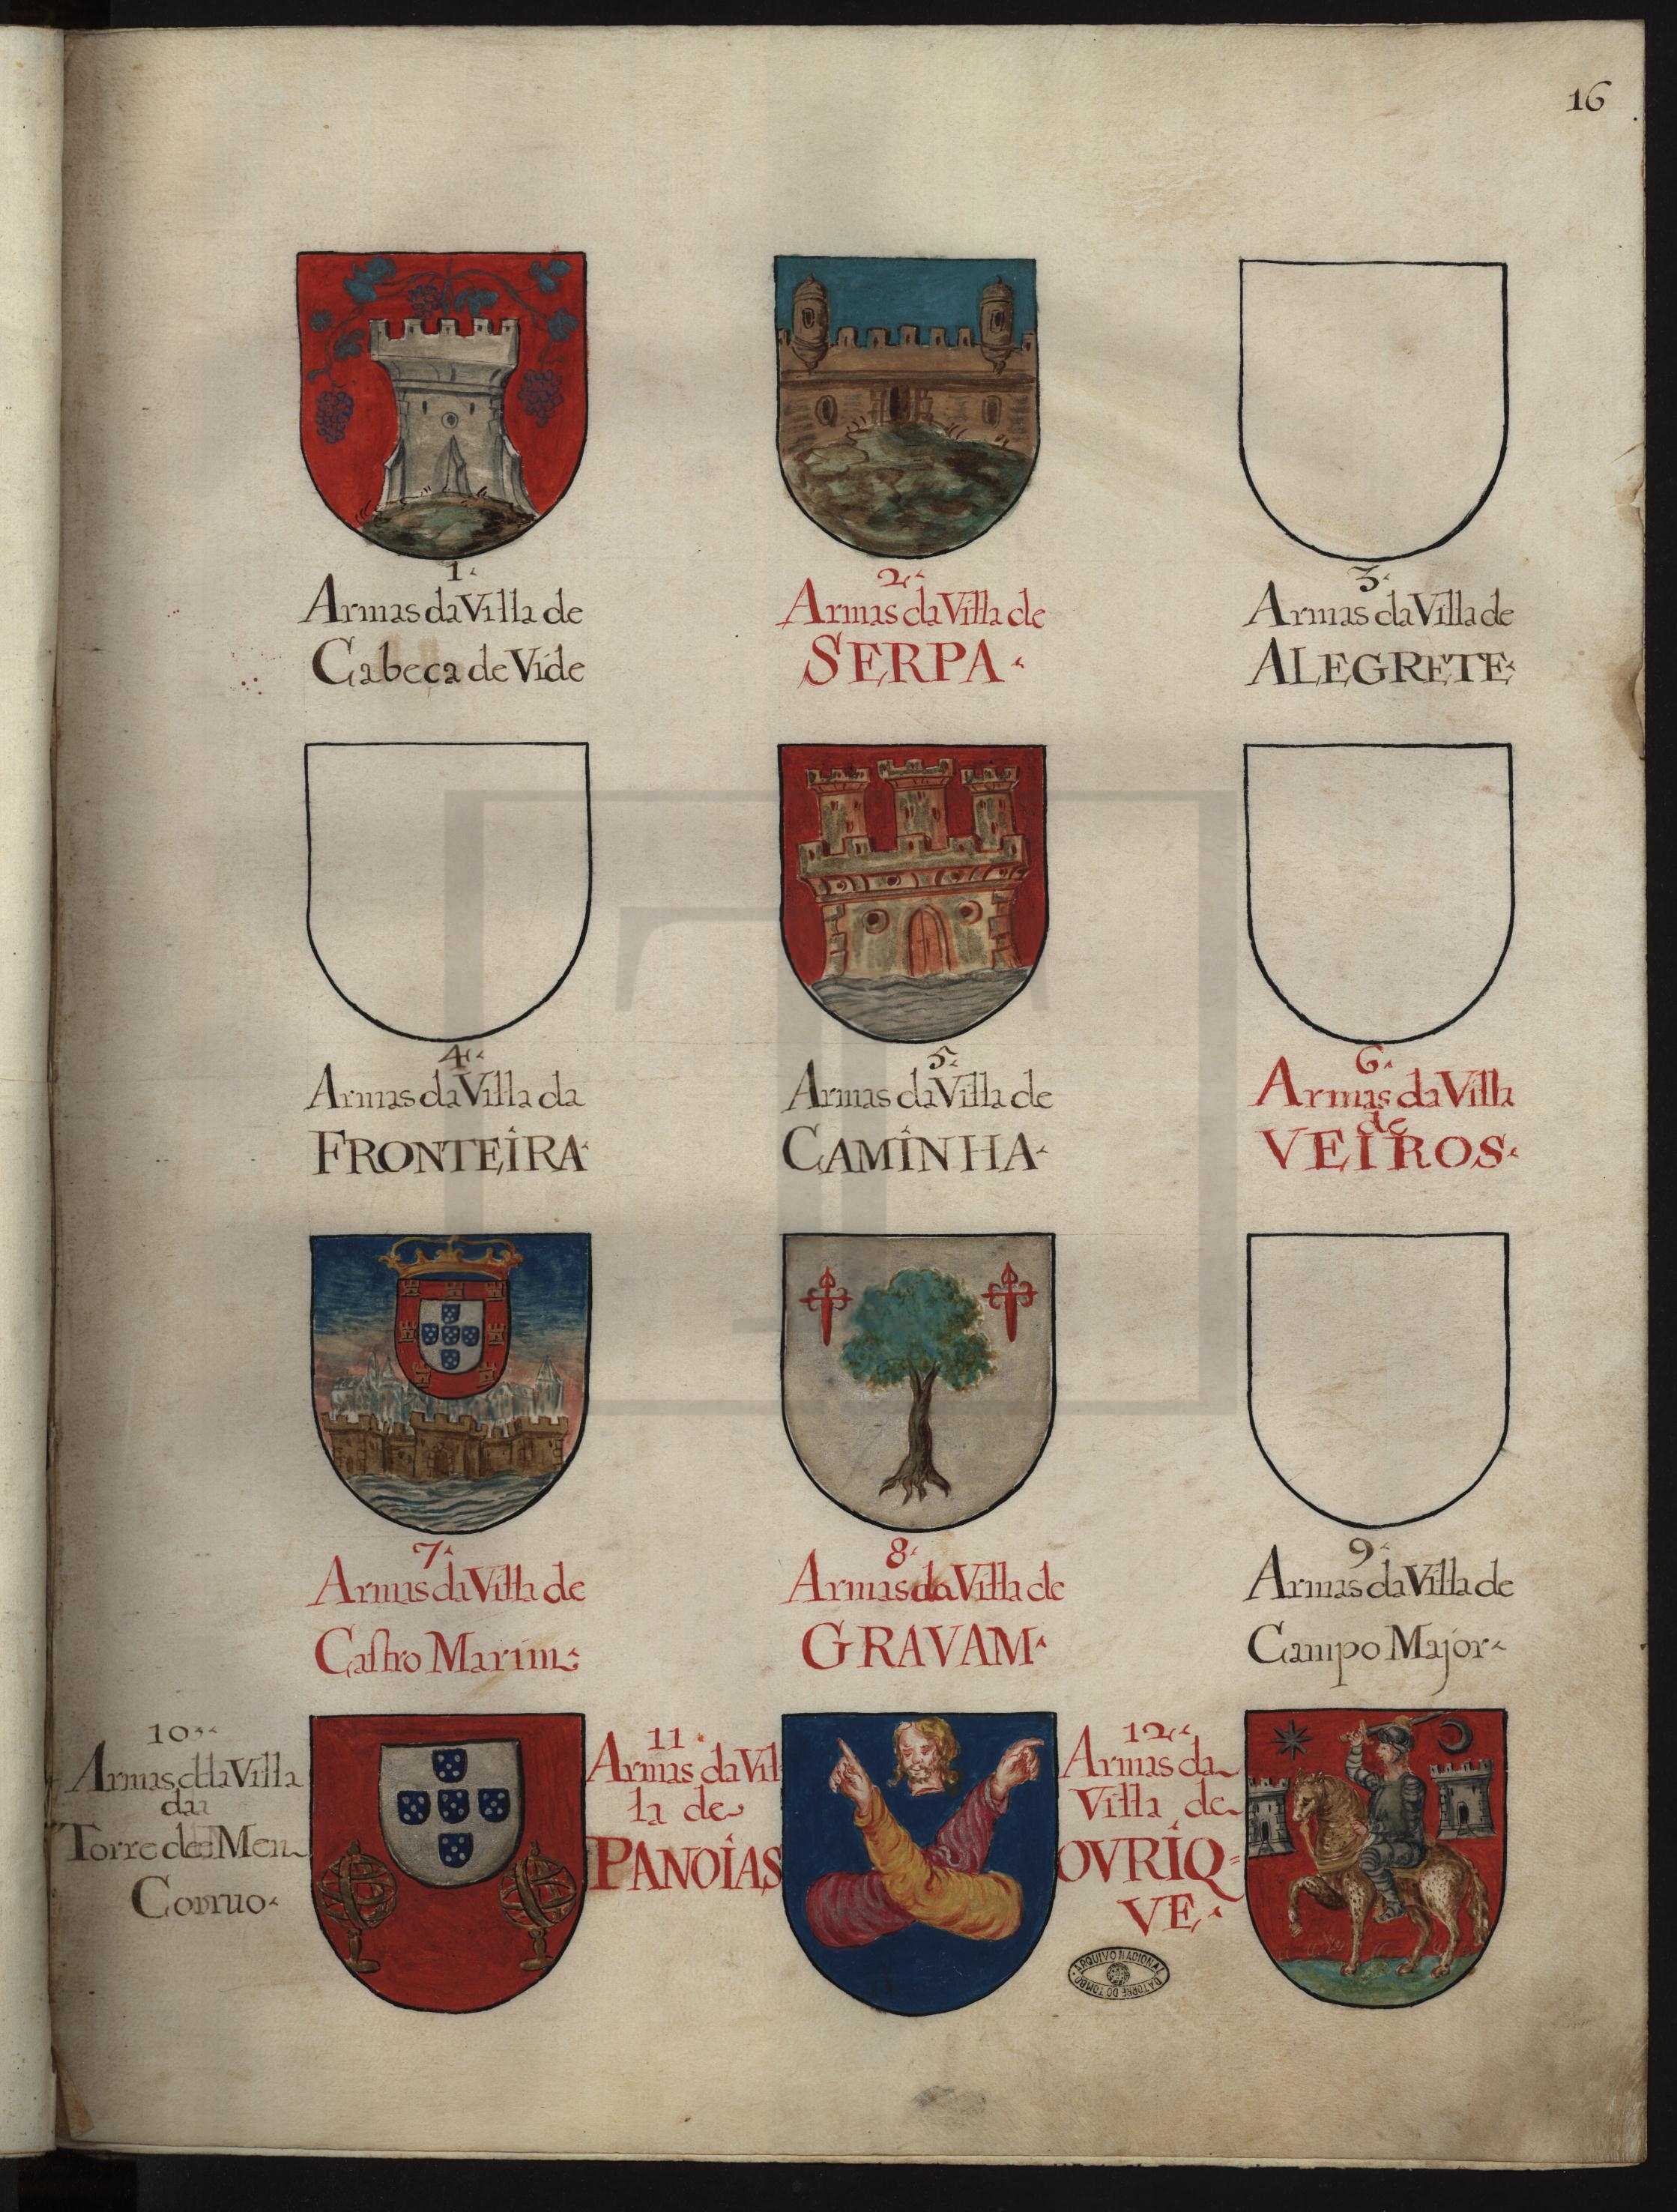 16
1.
Armas da Villa de
Cabeça de Vide
2.
Armas da Villa de
SERPA.
3.
Armas da Villa de
ALEGRETE.
4.
Armas da Villa da
FRONTEIRA.
5.
Armas da Villa de
CAMINHA.
6.
Armas da Villa
de
VEIROS.
7.
Armas da Villa de
Castro Marim.
8.
Armas da Villa de
GRAVAM.
9.
Armas da Villa de
Campo Major.
10.
Armas da Villa
da
Torre de Men
Coruo.
11.
Armas da Vil
la de
PANOIAS
12.
Armas da
Villa de
OVRIQ=
VE.
ARQUIVO NACIONAL
DA TORRE DO TOMBO